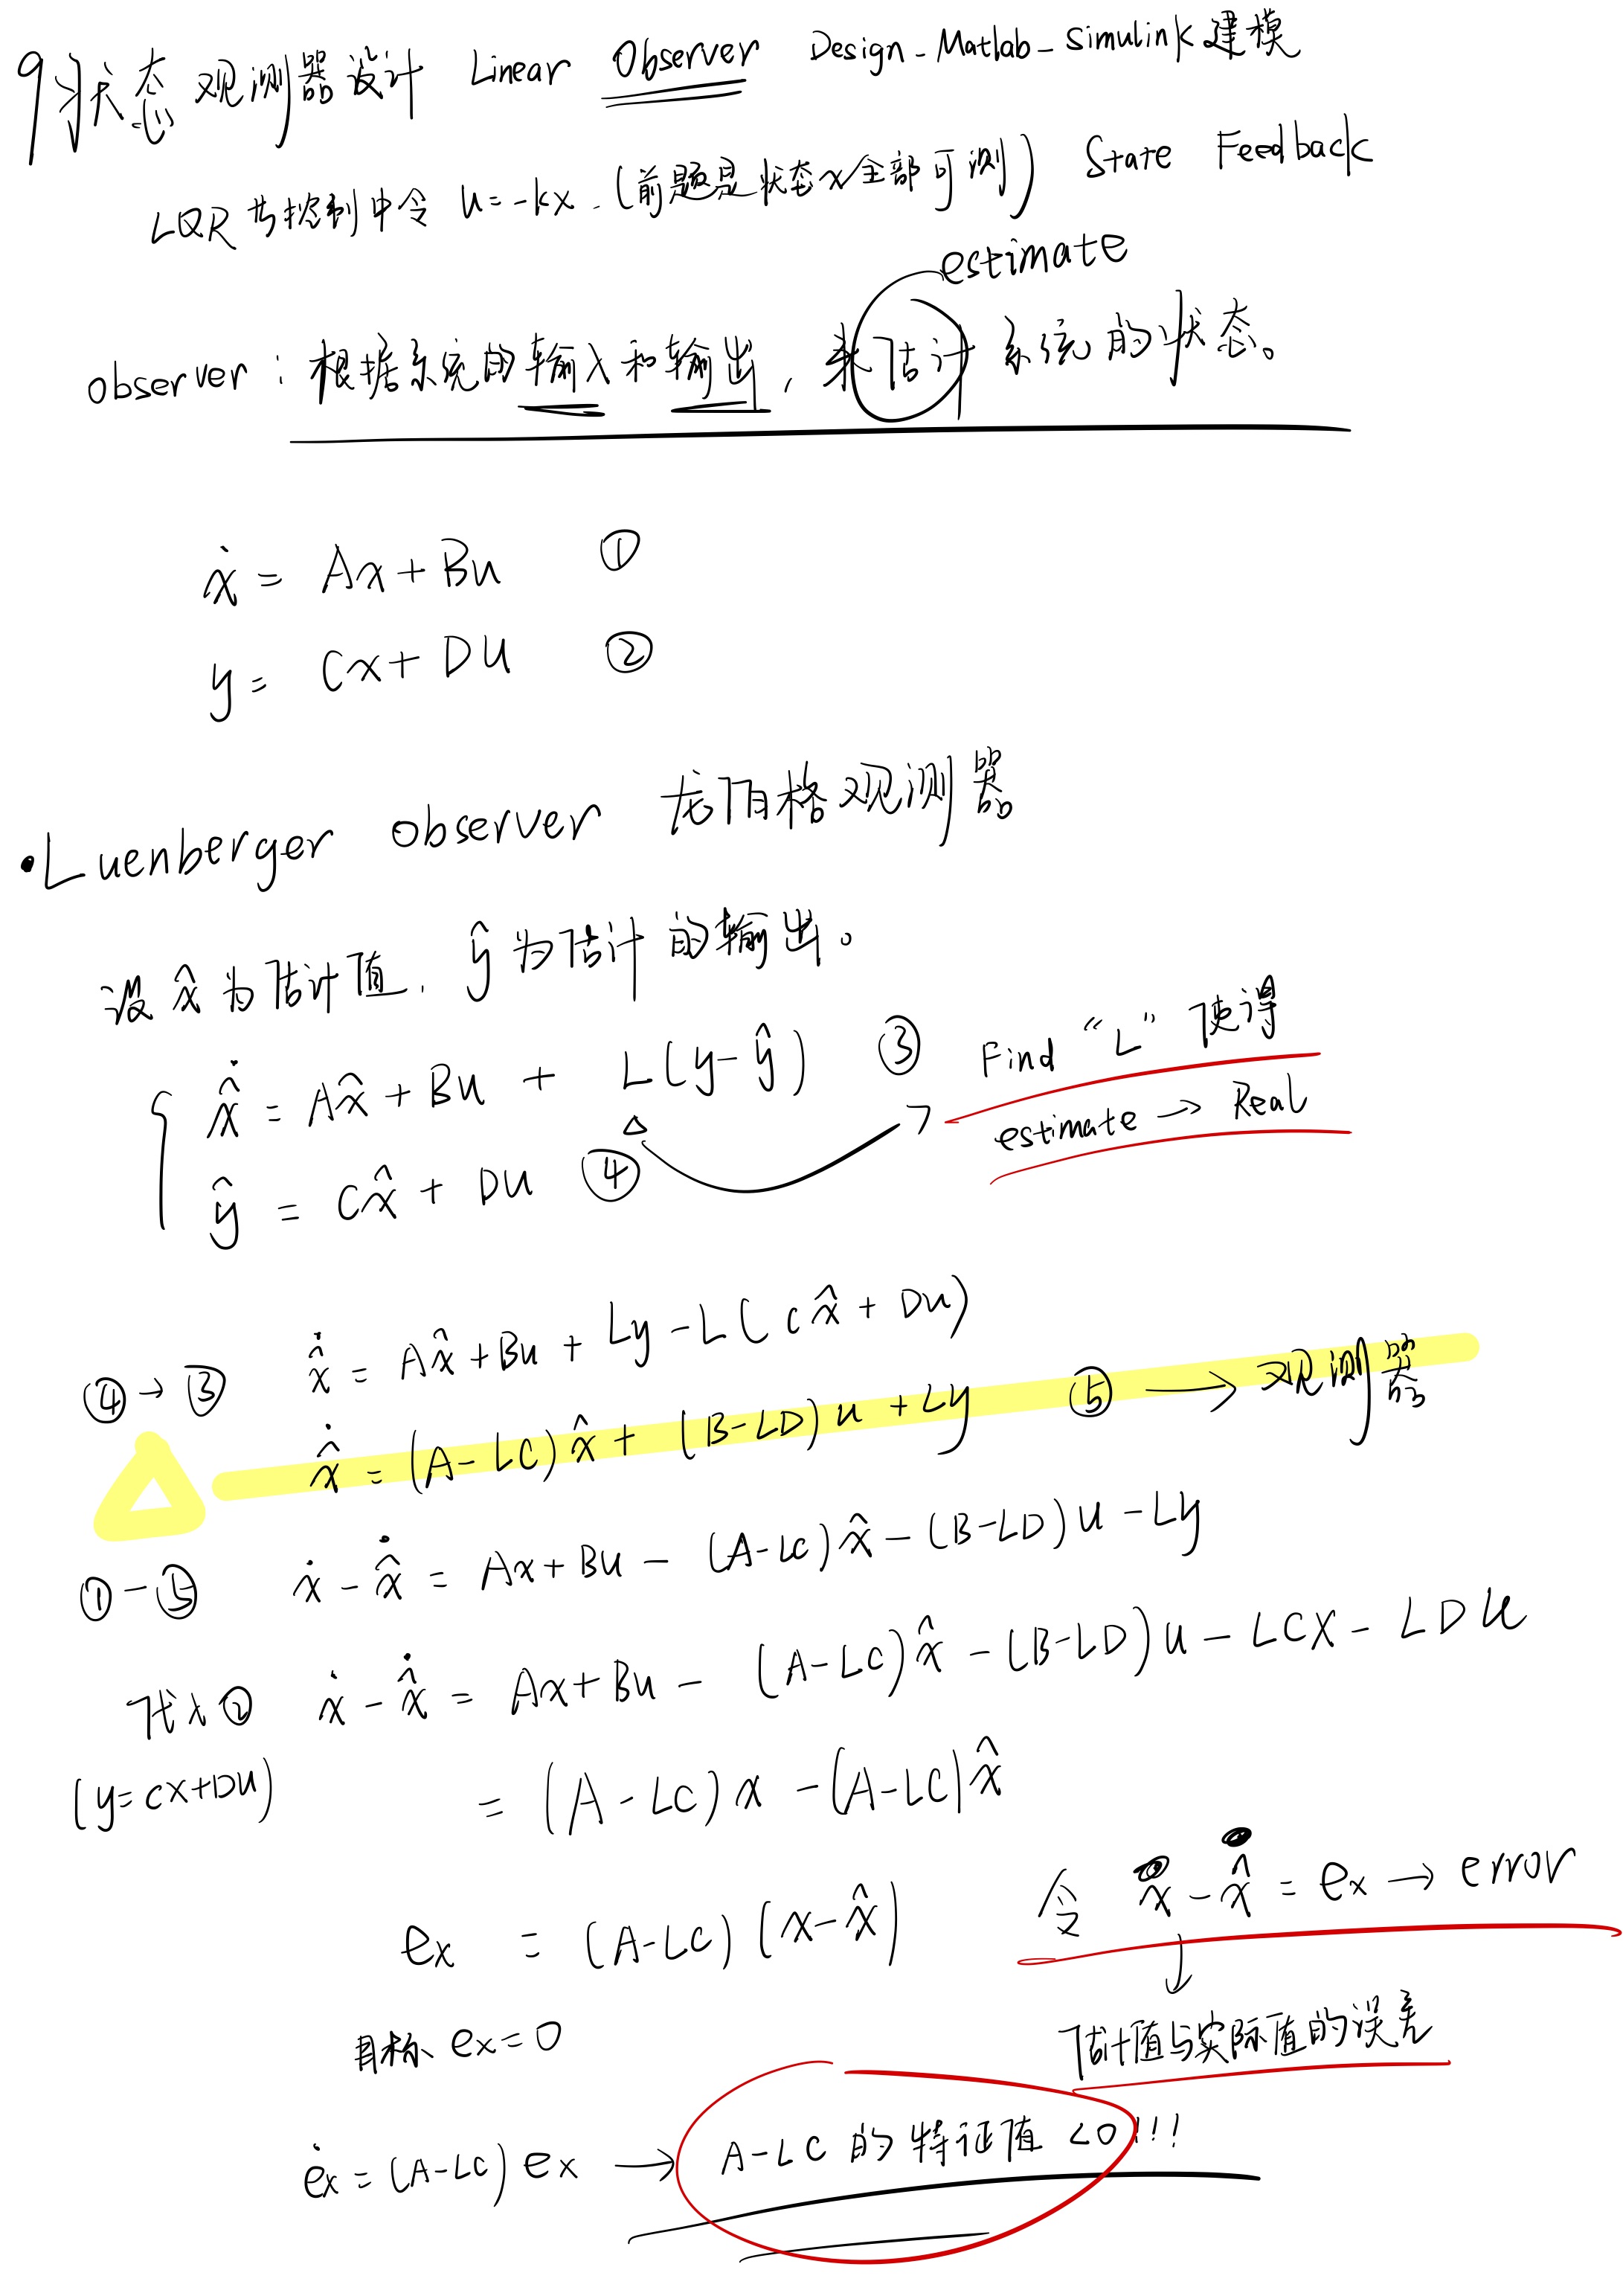 9 状态观测器设计 Linear Observer Design-Matlab-Simulink建模
LQR 控制中令 u=-kx.(前题是状态x全部可测) State Feedback
estimate
observer:根据系统的输入和输出,来估计系统的状态。
ẋ = Ax+Bu ①
y = Cx+Du ②
·Luenberger observer 龙伯格观测器
设 x̂ 为估计值, ŷ 为估计的输出。
x̂̇ = Ax̂+Bu + L(y-ŷ) ③ Find “L” 使得
estimate → Real
ŷ = Cx̂ + Du ④
④→③ x̂̇ = Ax̂+Bu + Ly-L(Cx̂ + Du)
x̂̇ = (A-LC)x̂+ (B-LD)u +Ly ⑤ → 观测器
①-⑤ ẋ-x̂̇ = Ax+Bu - (A-LC)x̂-(B-LD)u-Ly
代入② ẋ-x̂̇ = Ax+Bu - (A-LC)x̂-(B-LD)u-LCx-LDu
(y=Cx+Du) = (A-LC)x-(A-LC)x̂
令 x-x̂ = ex → error
ex = (A-LC)(x-x̂)
估计值与实际值的误差
目标 ex=0
ėx=(A-LC)ex → A-LC 的特征值 <0!!!